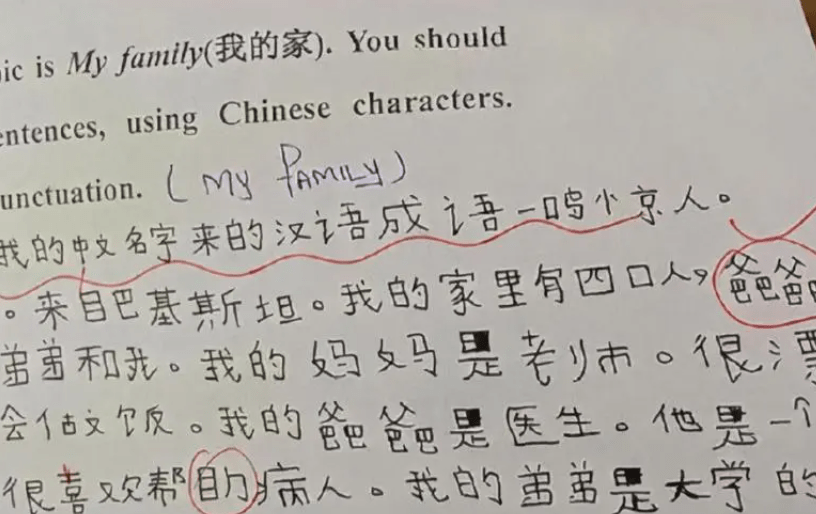 ic is My family(我的家). You should
entences, using Chinese characters.
unctuation. (MY FAMILY)
我的中文名字来的汉语成语一鸣小京人。
。来自巴基斯坦。我的家里有四口人,爸爸
弟弟和我。我的妈妈是老师。很漂
会估文饭。我的爸爸是医生。他是一个
很喜欢帮助病人。我的弟弟是大学的